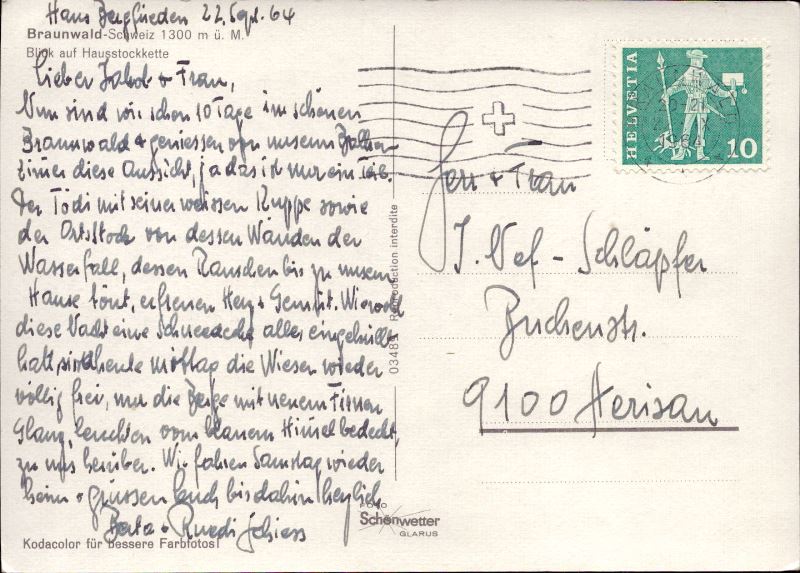 Haus Bergfrieden 22. Sept. 64
Braunwald-Schweiz 1300 m ü. M.
Blick auf Hausstockkette
Lieber Jakob + Frau,
Nun sind wir schon 10 Tage im schönen
Braunwald + geniessen von unserm
zimmer diese Aussicht, ja das ist nur ein Teil.
Der Tödi mit seiner weissen Kuppe sowie
der Ortstock von dessen Wänden der
Wasserfall, dessen Rauschen bis zu unserm
Hause tönt, erfreuen Herz + Gemüt. Wiewohl
diese Nacht eine Schneedecke alles eingehüllt
hatt, sind heute mittag die Wiesen wieder
völlig frei, nur die Berge mit neuem Firnen
Glanz, leuchten vom blauem Himmel bedeckt,
zu uns herüber. Wir fahren Samstag wieder
heim + grüssen Euch bis dahin herzlich
Ruedi Schiess
Kodacolor für bessere Farbfotos!
03485 Reproduction interdite
FOTO
Schönwetter
GLARUS
HELVETIA
10
1964
Herr + Frau
J. Nef - Schläpfer
Buchenstr.
9100 Herisau